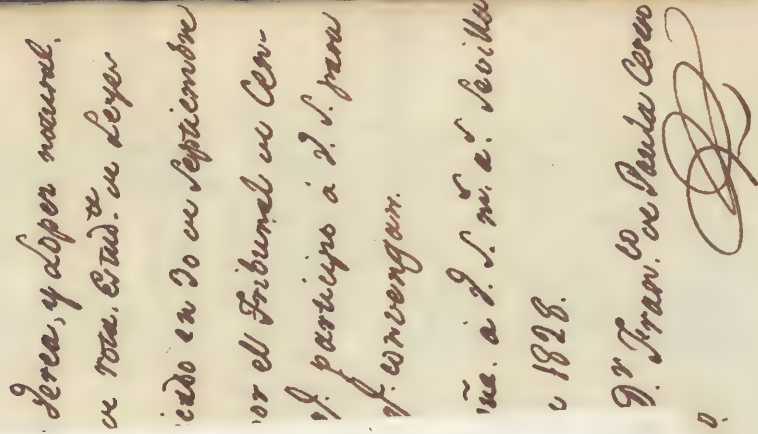 Perea, y Lopez natural.
de rota, Estud.te de Leyes
en 30 de Septiembre
or el Tribunal de Cen-
participo á V. S. para
q. convengan.
á V. S. m.s a.s Sevilla
1828.
D.r Fran.co de Paula